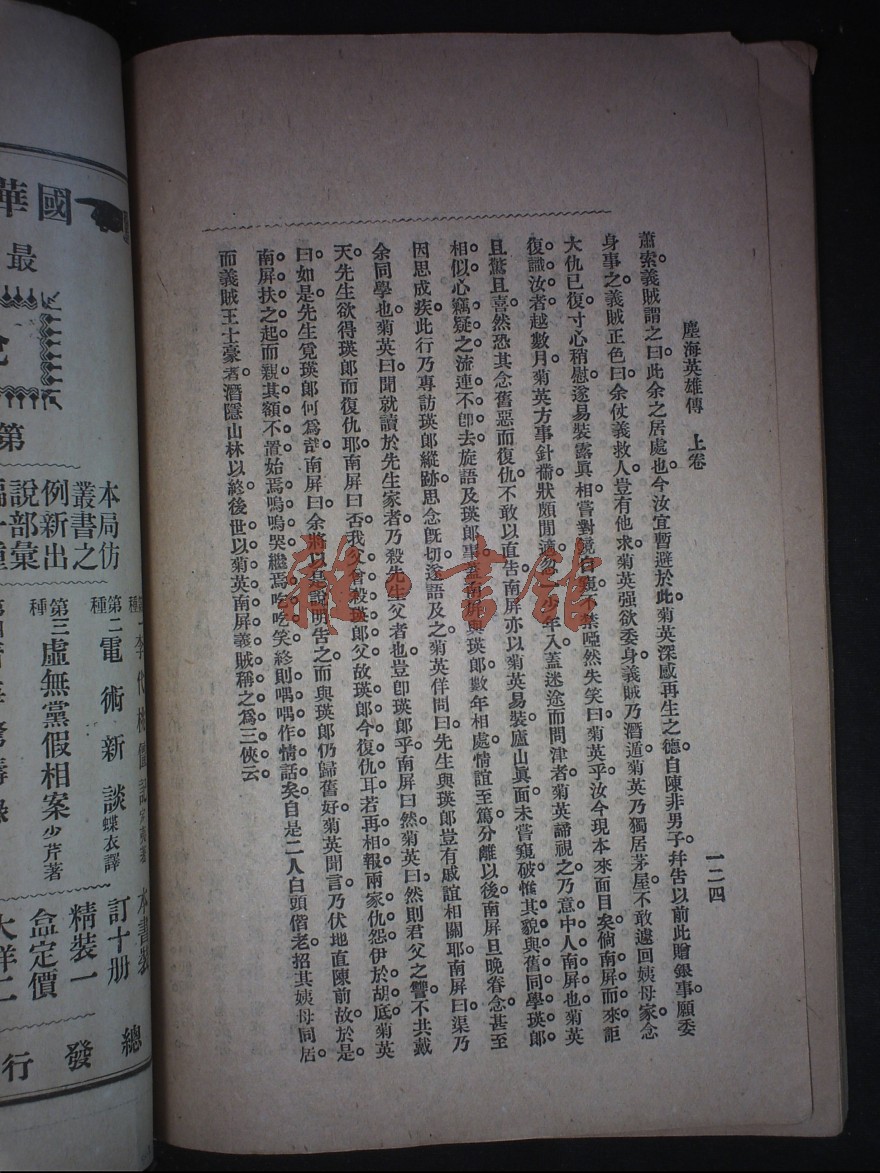 塵海英雄傳　上卷
一二四
蕭索。義賊謂之曰。此余之居處也。今汝宜暫避於此。菊英深感再生之德。自陳非男子。幷告以前此贈銀事。願委
身事之。義賊正色曰。余仗義救人。豈有他求。菊英强欲委身。義賊乃潛遁。菊英乃獨居茅屋。不敢遽回姨母家。念
大仇已復。寸心稍慰。遂易裝露眞相。嘗對鏡自窺。不禁啞然失笑曰。菊英乎。汝今現本來面目矣。倘南屏而來。詎
復識汝者。越數月。菊英方事針黹。狀頗閒適。忽一少年入。蓋迷途而問津者。菊英諦視之。乃意中人南屏也。菊英
且驚且喜。然恐其念舊惡而復仇。不敢以直告。南屏亦以菊英易裝。廬山眞面。未嘗窺破。惟其貌與舊同學瑛郎
相似。心竊疑之。流連不卽去。旋語及瑛郎事。蓋南屏與瑛郎數年相處。情誼至篤。分離以後。南屏旦晚眷念。甚至
因思成疾。此行乃專訪瑛郎縱跡。思念旣切。遂語及之。菊英佯問曰。先生與瑛郎豈有戚誼相關耶。南屏曰。渠乃
余同學也。菊英曰。聞就讀於先生家者。乃殺先生父者也。豈卽瑛郎乎。南屏曰。然。菊英曰。然則君父之讐。不共戴
天。先生欲得瑛郎而復仇耶。南屏曰。否。我父曾殺瑛郎父。故瑛郎今復仇耳。若再相報。兩家仇怨。伊於胡底。菊英
曰。如是。先生覓瑛郎何爲哉。南屏曰。余將以是說明告之。而與瑛郎仍歸舊好。菊英聞言。乃伏地直陳前故。於是
南屏扶之起。而親其額不置。始焉嗚嗚哭。繼焉吃吃笑。終則喁喁作情話矣。自是二人白頭偕老。招其姨母同居。
而義賊王士豪者。潛隱山林以終。後世以菊英南屏義賊稱之爲三俠云。
國華
最
第
本局仿
叢書之
例新出
說部彙
第二種　電術新談　蝶衣譯
第三種　虛無黨假相案　少芹著
訂十册
精裝一
盒定價
大洋二
總發行
雜·書館